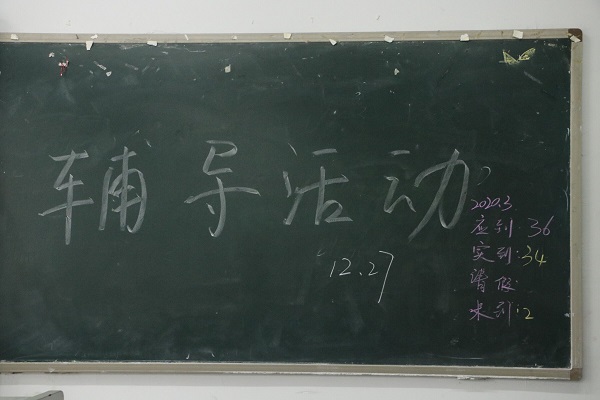 辅导活动
12.27
2020.3
应到:36
实到:34
请假:
未到:2